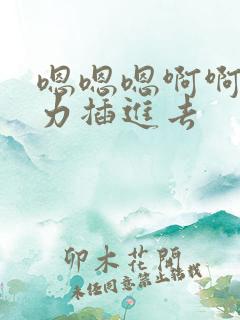 嗯嗯嗯啊啊
力插進去
卯木花開
未经同意禁止转载